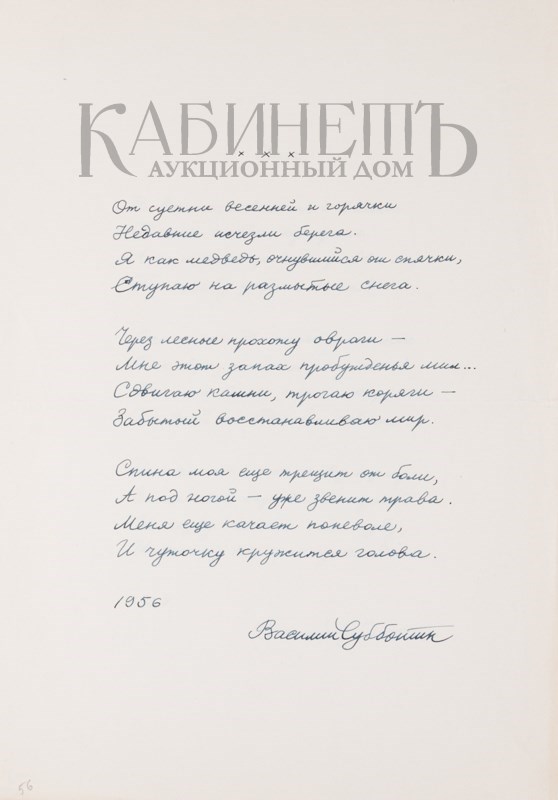 КАБИНЕТЪ
АУКЦИОННЫЙ ДОМ
× × ×
От суетни весенней и горячки
Недавние исчезли берега.
Я как медведь, очнувшийся от спячки,
Ступаю на размытые снега.
Через лесные прохожу овраги —
Мне этот запах пробужденья мил...
Сдвигаю камни, трогаю коряги —
Забытый восстанавливаю мир.
Спина моя еще трещит от боли,
А под ногой — уже звенит трава.
Меня еще качает поневоле,
И чуточку кружится голова.
1956
Василий Субботин
56